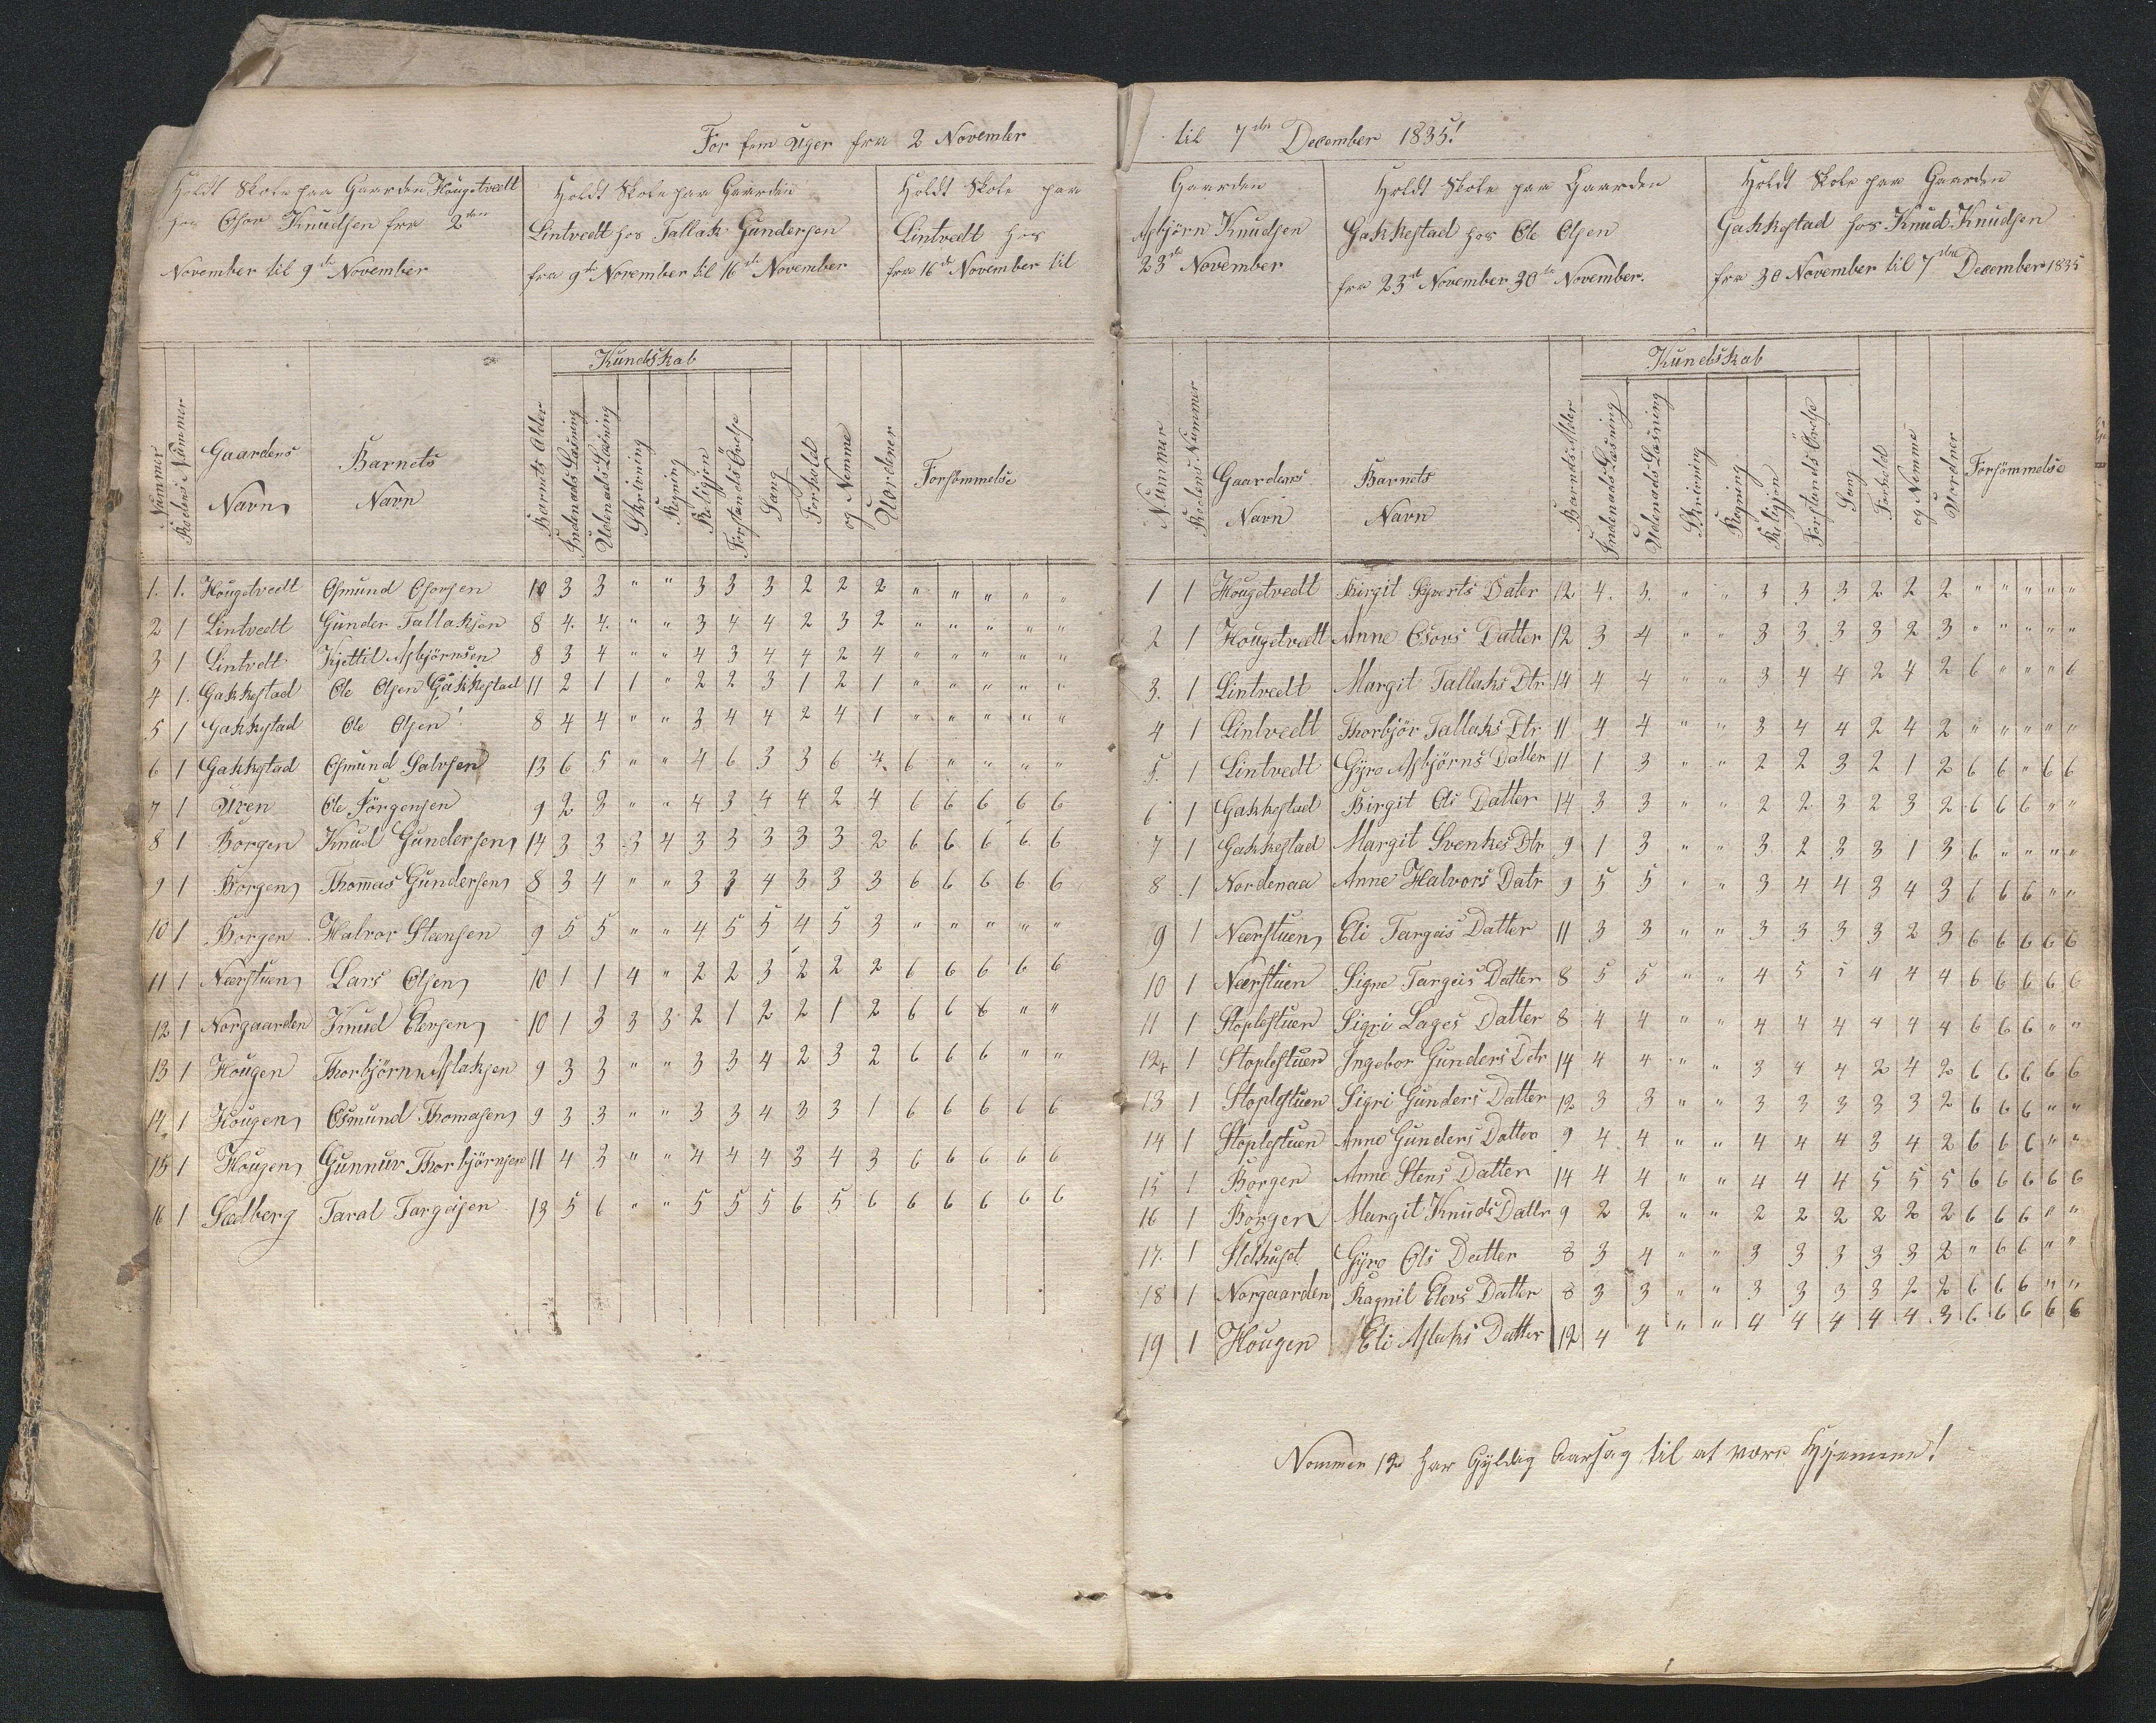 For fem Uger fra 2 November
Holdt Skole paa Gaarden Hougetvedt
hos Osor Knudsen fra 2den
November til 9de November
Holdt Skole paa Gaarden
Lintvedt hos Tallak Gundersen
fra 9de November til 16de November
Holdt Skole paa
Lintvedt hos
fra 16de November til
Kundskab
Nummer
Rodens Nummer
Gaardens Navn
Barnets Navn
Barnets Alder
Indenads Læsning
Udenads Læsning
Skrivning
Regning
Religjon
Forstands Övelse
Sang
Forhold
og Nemme
Uordener
Forsömmelse
1. 1. Hougetvedt Osmund Osorsen 10 3 3 " " 3 3 3 2 2 2 " " " " "
2 1 Lintvedt Gunder Tallaksen 8 4. 4. " " 3 4 4 2 3 2 " " " " "
3 1 Lintvedt Kjettil Asbjörnsen 8 3 4 " " 4 3 4 4 2 4 " " " " "
4 1. Gakkestad Ole Olsen Gakkestad 11 2 1 1 " 2 2 3 1 2 1 " " " " "
5 1 Gakkestad Ole Olsen 8 4 4 " " 3 4 4 2 4 1 " " " " "
6 1 Gakkestad Osmund Salvesen 13 6 5 " " 4 6 3 3 6 4 6 " " " "
7 1 Uren Ole Jörgensen 9 2 3 " " 4 3 4 4 2 4 6 6 6 6 6
8 1 Borgen Knud Gundersen 14 3 3 3 4 3 3 3 3 3 2 6 6 6 6 6
9 1 Borgen Thommas Gundersen 8 3 4 " " 3 3 4 3 3 3 6 6 6 6 6
10 1 Borgen Halvor Steensen 9 5 5 " " 4 5 5 4 5 3 " " " " "
11 1 Nærstuen Lars Olsen 10 1 1 4 " 2 2 3 2 2 2 6 6 6 6 6
12 1 Norgaarden Knud Elersen 10 1 3 3 3 2 1 2 2 1 2 6 6 6 " "
13 1 Hougen Thorbjörn Aslaksen 9 3 3 " " 3 3 4 2 3 2 6 6 6 " "
14 1 Hougen Osmund Thomasen 9 3 3 " " 3 3 4 3 3 1 6 6 6 6 6
15 1 Hougen Gunnuv Thorbjörnsen 11 4 3 " " 4 4 4 3 4 3 6 6 6 6 6
16 1 Sælberg Taral Targeisen 13 5 6 " " 5 5 5 6 5 6 6 6 6 6 6
til 7de December 1835!
Gaarden
Asbjörn Knudsen
23de November
Holdt Skole paa Gaarden
Gakkestad hos Ole Olsen
fra 23de November 30te November.
Holdt Skole paa Gaarden
Gakkestad hos Knud Knudsen
fra 30 November til 7de December 1835
Kundskab
Nummer
Rodens Nummer
Gaardens Navn
Barnets Navn
Barnets Alder
Indenads Læsning
Udenads Læsning
Skrivning
Regning
Religjon
Forstands Övelse
Sang
Forhold
og Nemme
Uordner
Forsömmelse
1 1 Hougetvedt Birgit Syverts Dater 12 4. 3. " " 3 3 3 2 2 2 " " " " "
2 1 Hougetvedt Anne Osors Datter 12 3 4 " " 3 3 3 3 2 3 " " " " "
3. 1 Lintvedt Margit Tallaks Dtr 14 4 4 " " 3 4 4 2 4 2 6 " " " 6
4 1 Lintvedt Thorbjör Tallaks Dtr 11 4 4 " " 3 4 4 2 4 2 " " " " "
5. 1 Lintvedt Gyro Asbjörns Datter 11 1 3 " " 2 2 3 2 1 2 6 6 " 6 6
6 1 Gakkestad Birgit Ols Datter 14 3 3 " " 2 2 3 2 3 2 6 6 6 " "
7 1 Gakkestad Margit Svenkes Dtr 9 1 3 " " 3 2 3 3 1 3 6 " " " "
8 1 Nordenaa Anne Halvors Datr 9 5 5 " " 3 4 4 3 4 3 6 6 6 " "
9 1 Nærstuen Eli Targeis Datter 11 3 3 " " 3 3 3 3 2 3 6 6 6 6 6
10 1 Nærstuen Signe Targeis Datter 8 5 5 " " 4 5 5 4 4 4 6 6 6 6 6
11 1 Stoplestuen Sigri Lages Datter 8 4 4 " " 4 4 4 4 4 4 6 6 6 " "
12 1 Stoplestuen Ingebor Gunders Dtr 14 4 4 " " 3 4 4 2 4 2 6 6 6 6 6
13 1 Stoplestuen Sigri Gunders Datter 12 3 3 " " 3 3 3 3 3 2 6 6 6 " "
14 1 Stoplestuen Anne Gunders Datter 9 4 4 " " 4 4 4 3 4 2 6 6 6 " "
15 1 Borgen Anne Stens Datter 14 4 4 " " 4 4 4 5 5 5 6 6 6 6 6
16 1 Borgen Margit Knuds Dattr 9 2 2 " " 2 2 2 2 2 2 6 6 6 " "
17. 1 Gyro Ols Datter 8 3 4 " " 3 3 3 3 3 2 " 6 6 " "
18 1 Norgaarden Ragnil Elers Datter 8 3 3 " " 3 3 3 3 2 2 6 6 6 " "
19 1 Hougen Eli Aslaks Datter 12 4 4 " " 4 4 4 4 4 3 6 6 6 6 6
Nommer 12 har Gyldig Aarsag til at være Hjemme!